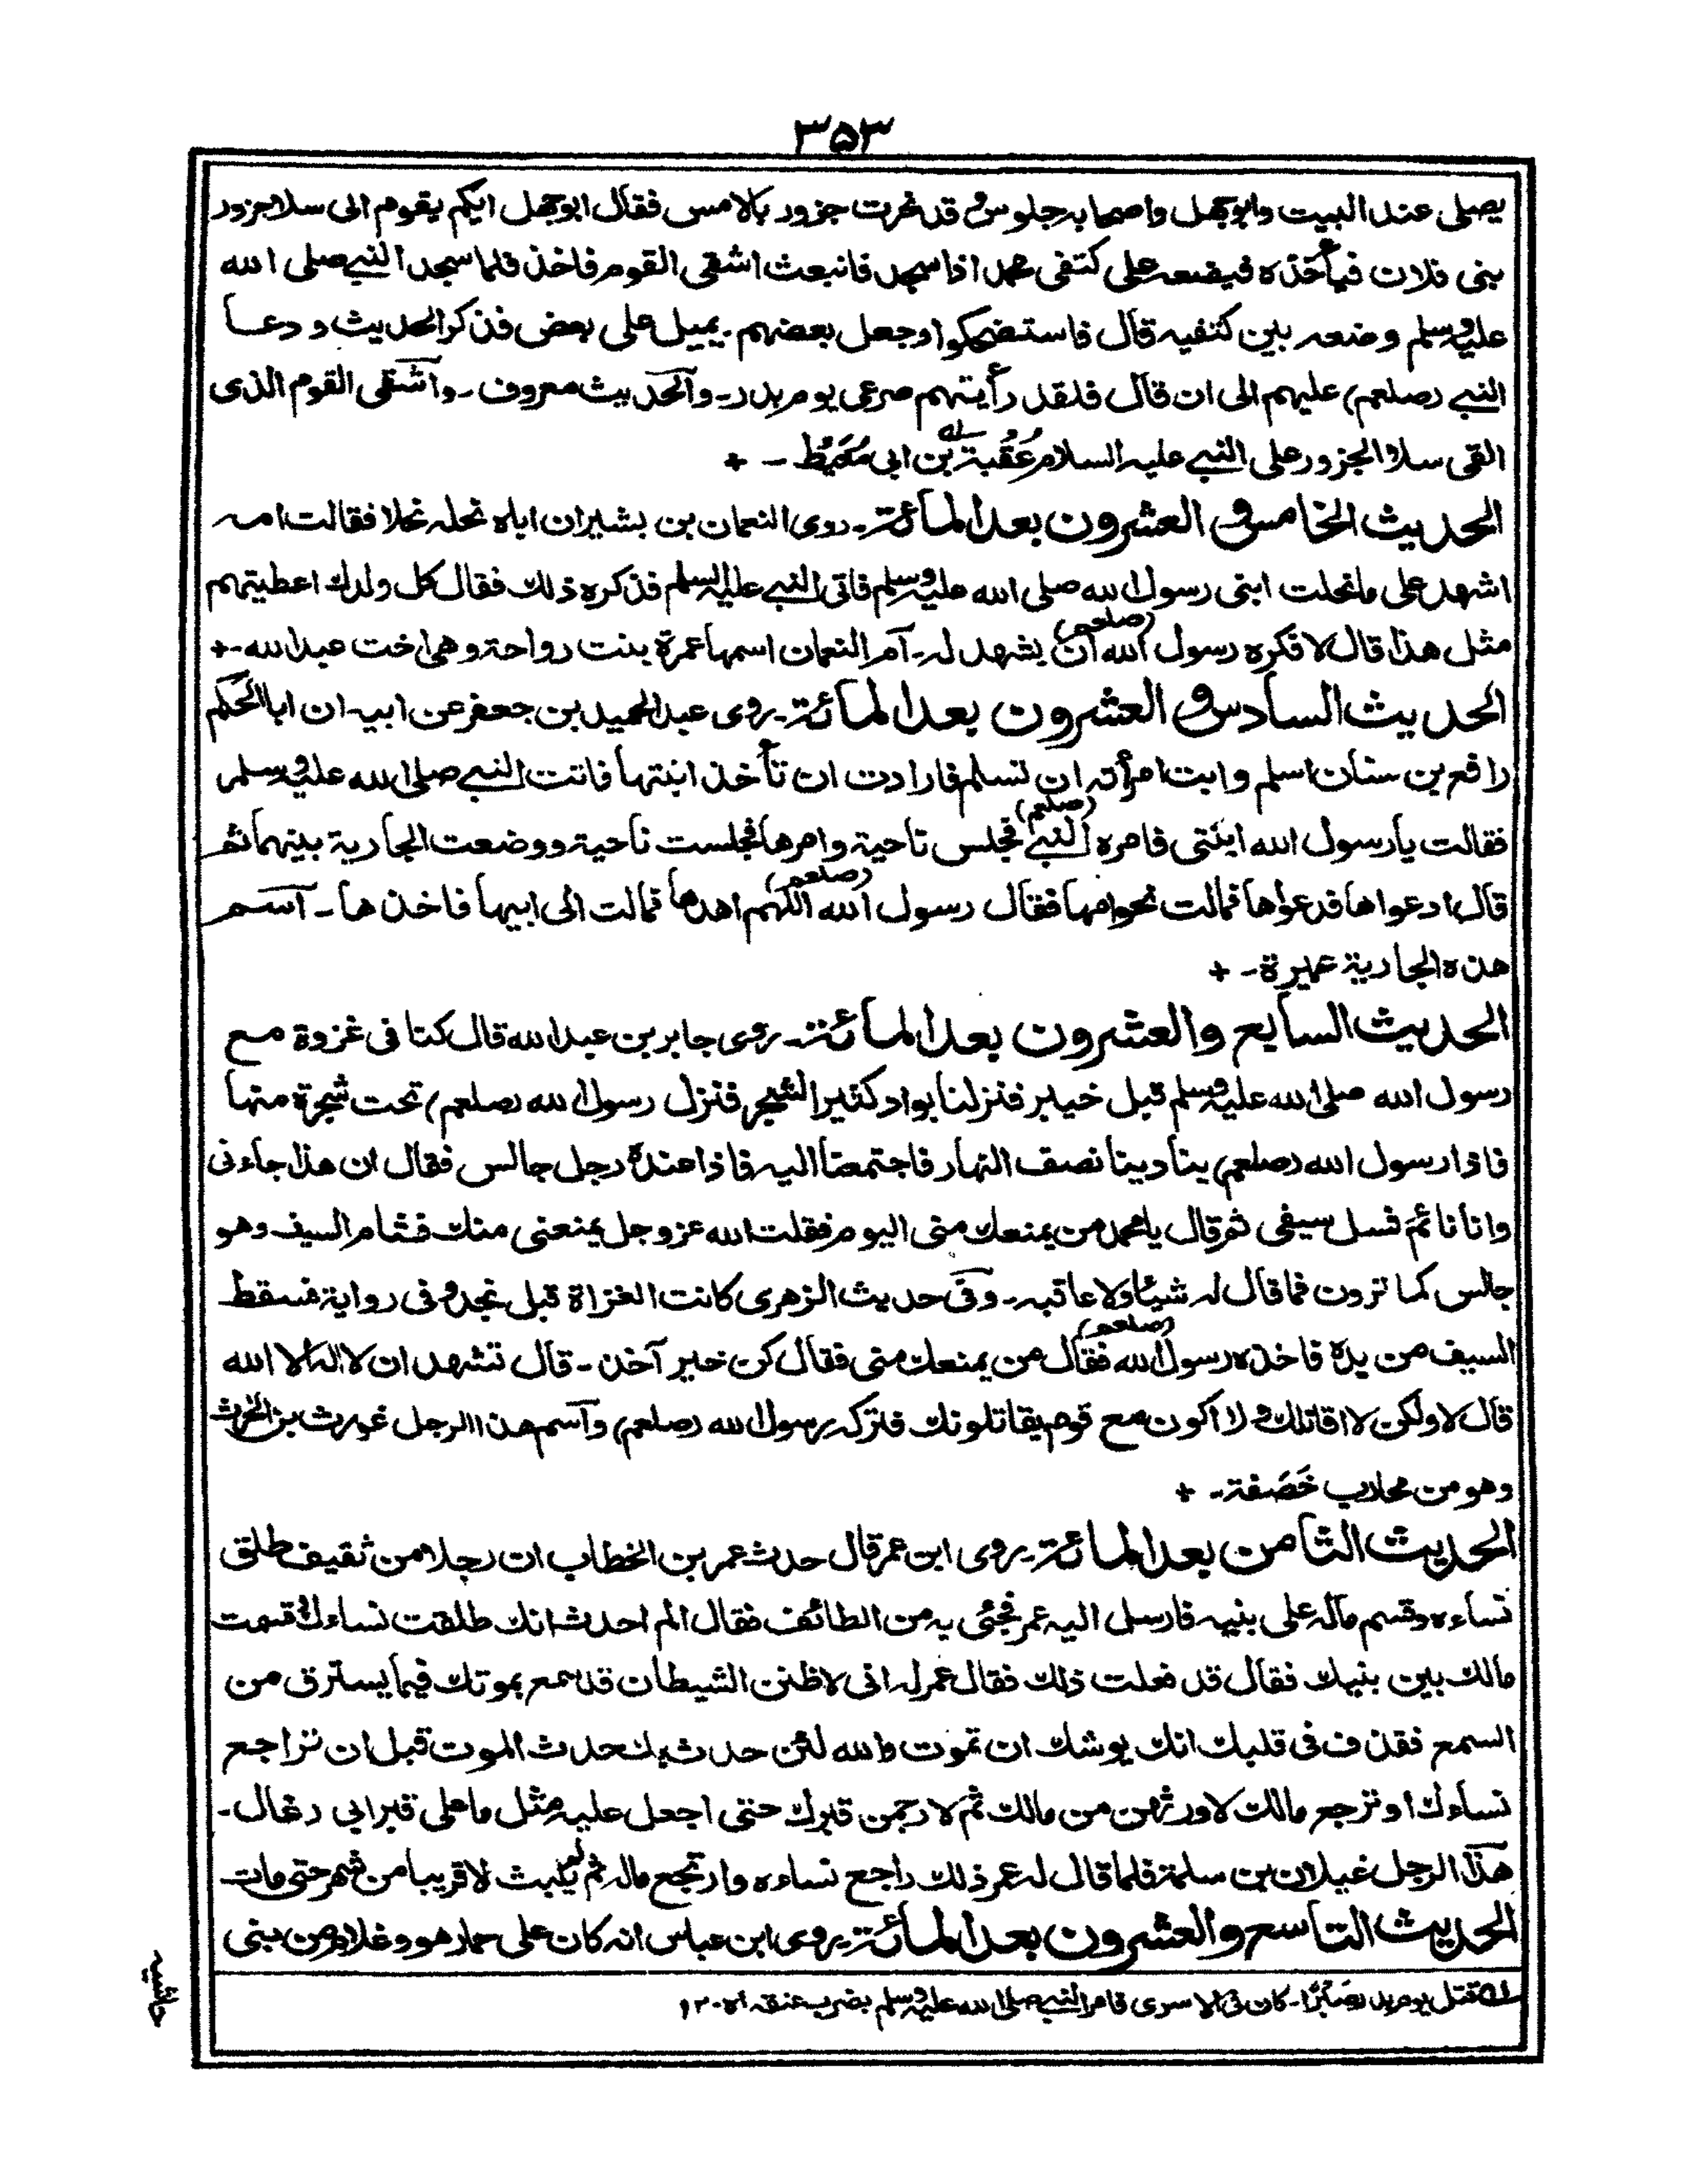 ٣٥٣
يصلى عند البيت وابوجهل واصحابه جلوس وقد نحرت جزور بالامس فقال ابوجهل ايكم يقوم الى سلاجزور
بنى فلان فيأخذه فيضعه على كتفى محمد اذا سجد فانبعث اشقى القوم فاخذ فلما سجد النبي صلى الله
عليه وسلم وضعه بين كتفيه قال فاستضحكوا وجعل بعضهم يميل على بعض فذكر الحديث و دعا
النبي (صلعم) عليهم الى ان قال فلقد رأيتهم صرعى يوم بدر ـ وآلحديث معروف ـ وآشقى القوم الذى
القى سلا الجزور على النبي عليه السلام عُقُبة بن ابى مُعَيْط ـ +
الحديث الخامس و العشرون بعد المائة ـ روى النعمان بن بشير ان اباه نحله نحلا فقالت امه
اشهد على ما نحلت ابنى رسول الله صلى الله عليه وسلم فاتى النبي عليه السلم فذكره ذلك فقال كل ولدك اعطيتهم
مثل هذا قال لا فكره رسول الله (صلعم) ان يشهد له ـ آم النعمان اسمها عمرة بنت رواحة وهى اخت عبد الله ـ +
الحديث السادس و العشرون بعد المائة ـ روى عبد الحميد بن جعفر عن ابيه ان ابا الحَكَم
رافع بن سنان اسلم وابت امرأته ان تسلم فارادت ان تأخذ ابنتها فاتت النبي صلى الله عليه وسلم
فقالت يا رسول الله ابنتى فامره النبي (صلعم) فجلس ناحية وامرها فجلست ناحية ووضعت الجارية بينهما ثم
قال ادعواها فدعواها فمالت نحو امها فقال رسول الله (صلعم) اللهم اهدها فمالت الى ابيها فاخذها ـ آسم
هذه الجارية عميرة ـ +
الحديث السابع والعشرون بعد المائة ـ روى جابر بن عبد الله قال كنا فى غزوة مع
رسول الله صلى الله عليه وسلم قبل خيبر فنزلنا بواد كثير الشجر فنزل رسول الله (صلعم) تحت شجرة منها
فاذا رسول الله (صلعم) ينادينا نصف النهار فاجتمعنا اليه فاذا عنده رجل جالس فقال ان هذا جاءنى
وانا نائم فسل سيفى ثم قال يا محمد من يمنعك منى اليوم فقلت الله عزوجل يمنعنى منك فشام السيف وهو
جالس كما ترون فما قال له شيئا ولا عاقبه ـ وفى حديث الزهرى كانت الغزاة قبل نجد وفى رواية فسقط
السيف من يده فاخذه رسول الله (صلعم) فقال من يمنعك منى فقال كن خير آخذ ـ قال تشهد ان لا اله الا الله
قال لا ولكن لا اقاتلك ولا اكون مع قوم يقاتلونك فتركه رسول الله (صلعم) وآسم هذا الرجل غورث بن الحرث
وهو من محارب خَصَفة ـ +
الحديث الثامن بعد المائة ـ روى ابن عمر قال حدث عمر بن الخطاب ان رجلا من ثقيف طلق
نساءه وقسم ماله على بنيه فارسل اليه عمر فجئى به من الطائف فقال الم احدث انك طلقت نساءك وقسمت
مالك بين بنيك فقال قد فعلت ذلك فقال عمر له انى لاظن الشيطان قد سمع بموتك فيما يسترق من
السمع فقذف فى قلبك انك يوشك ان تموت والله لئن حدث بك حدث الموت قبل ان تراجع
نساءك او ترجع مالك لاورثهن من مالك ثم لارجمن قبرك حتى اجعل عليه مثل ما على قبر ابى رغال ـ
هذا الرجل غيلان بن سلمة فلما قال له عمر ذلك راجع نساءه وارتجع ماله ثم لم يلبث الا قريبا من شهر حتى مات
الحديث التاسع والعشرون بعد المائة ـ روى ابن عباس انه كان على حمار هو وغلام من بنى
حاشيه
له قتل يوم بدر صَبْرًا ـ كان فى الاسرى فامر النبي صلى الله عليه وسلم بضرب عنقه اه ـ ١٢